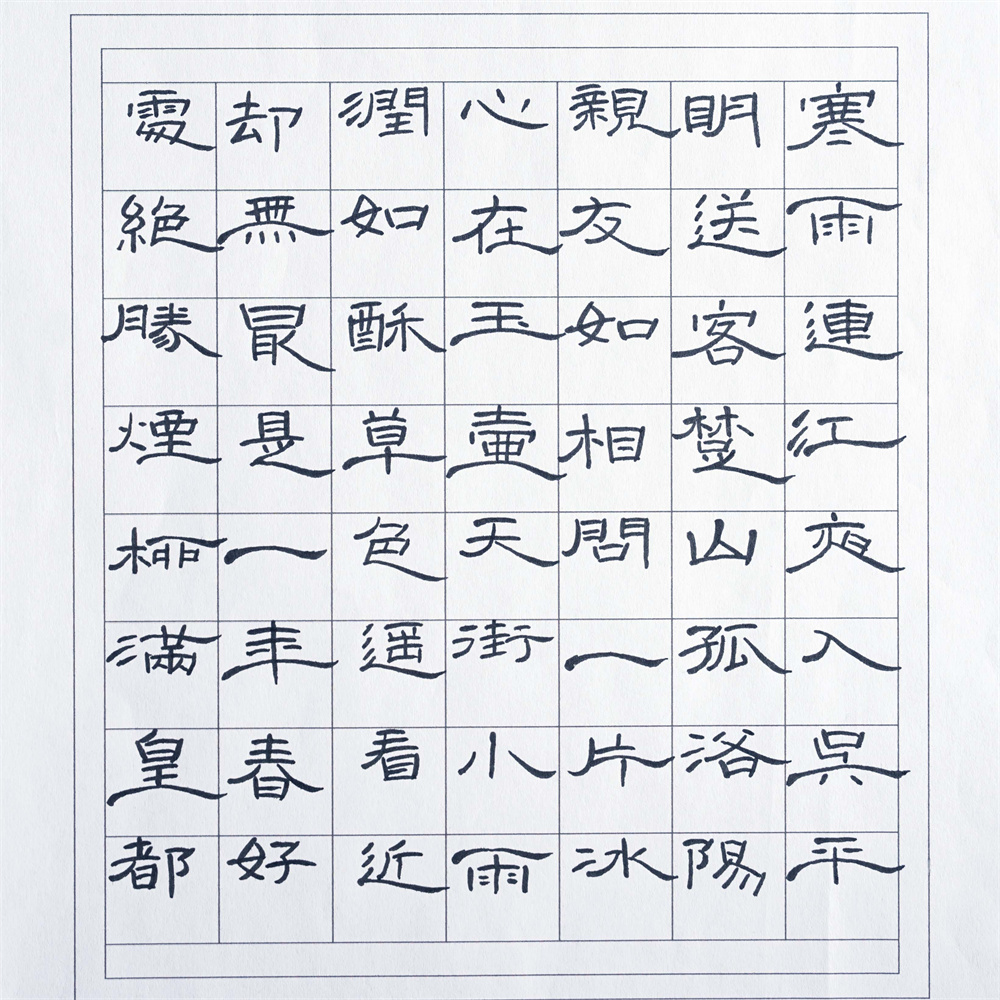 寒雨連江夜入吳平
明送客楚山孤洛陽
親友如相問一片冰
心在玉壺天街小雨
潤如酥草色遥看近
却無最是一年春好
處絶勝煙柳滿皇都